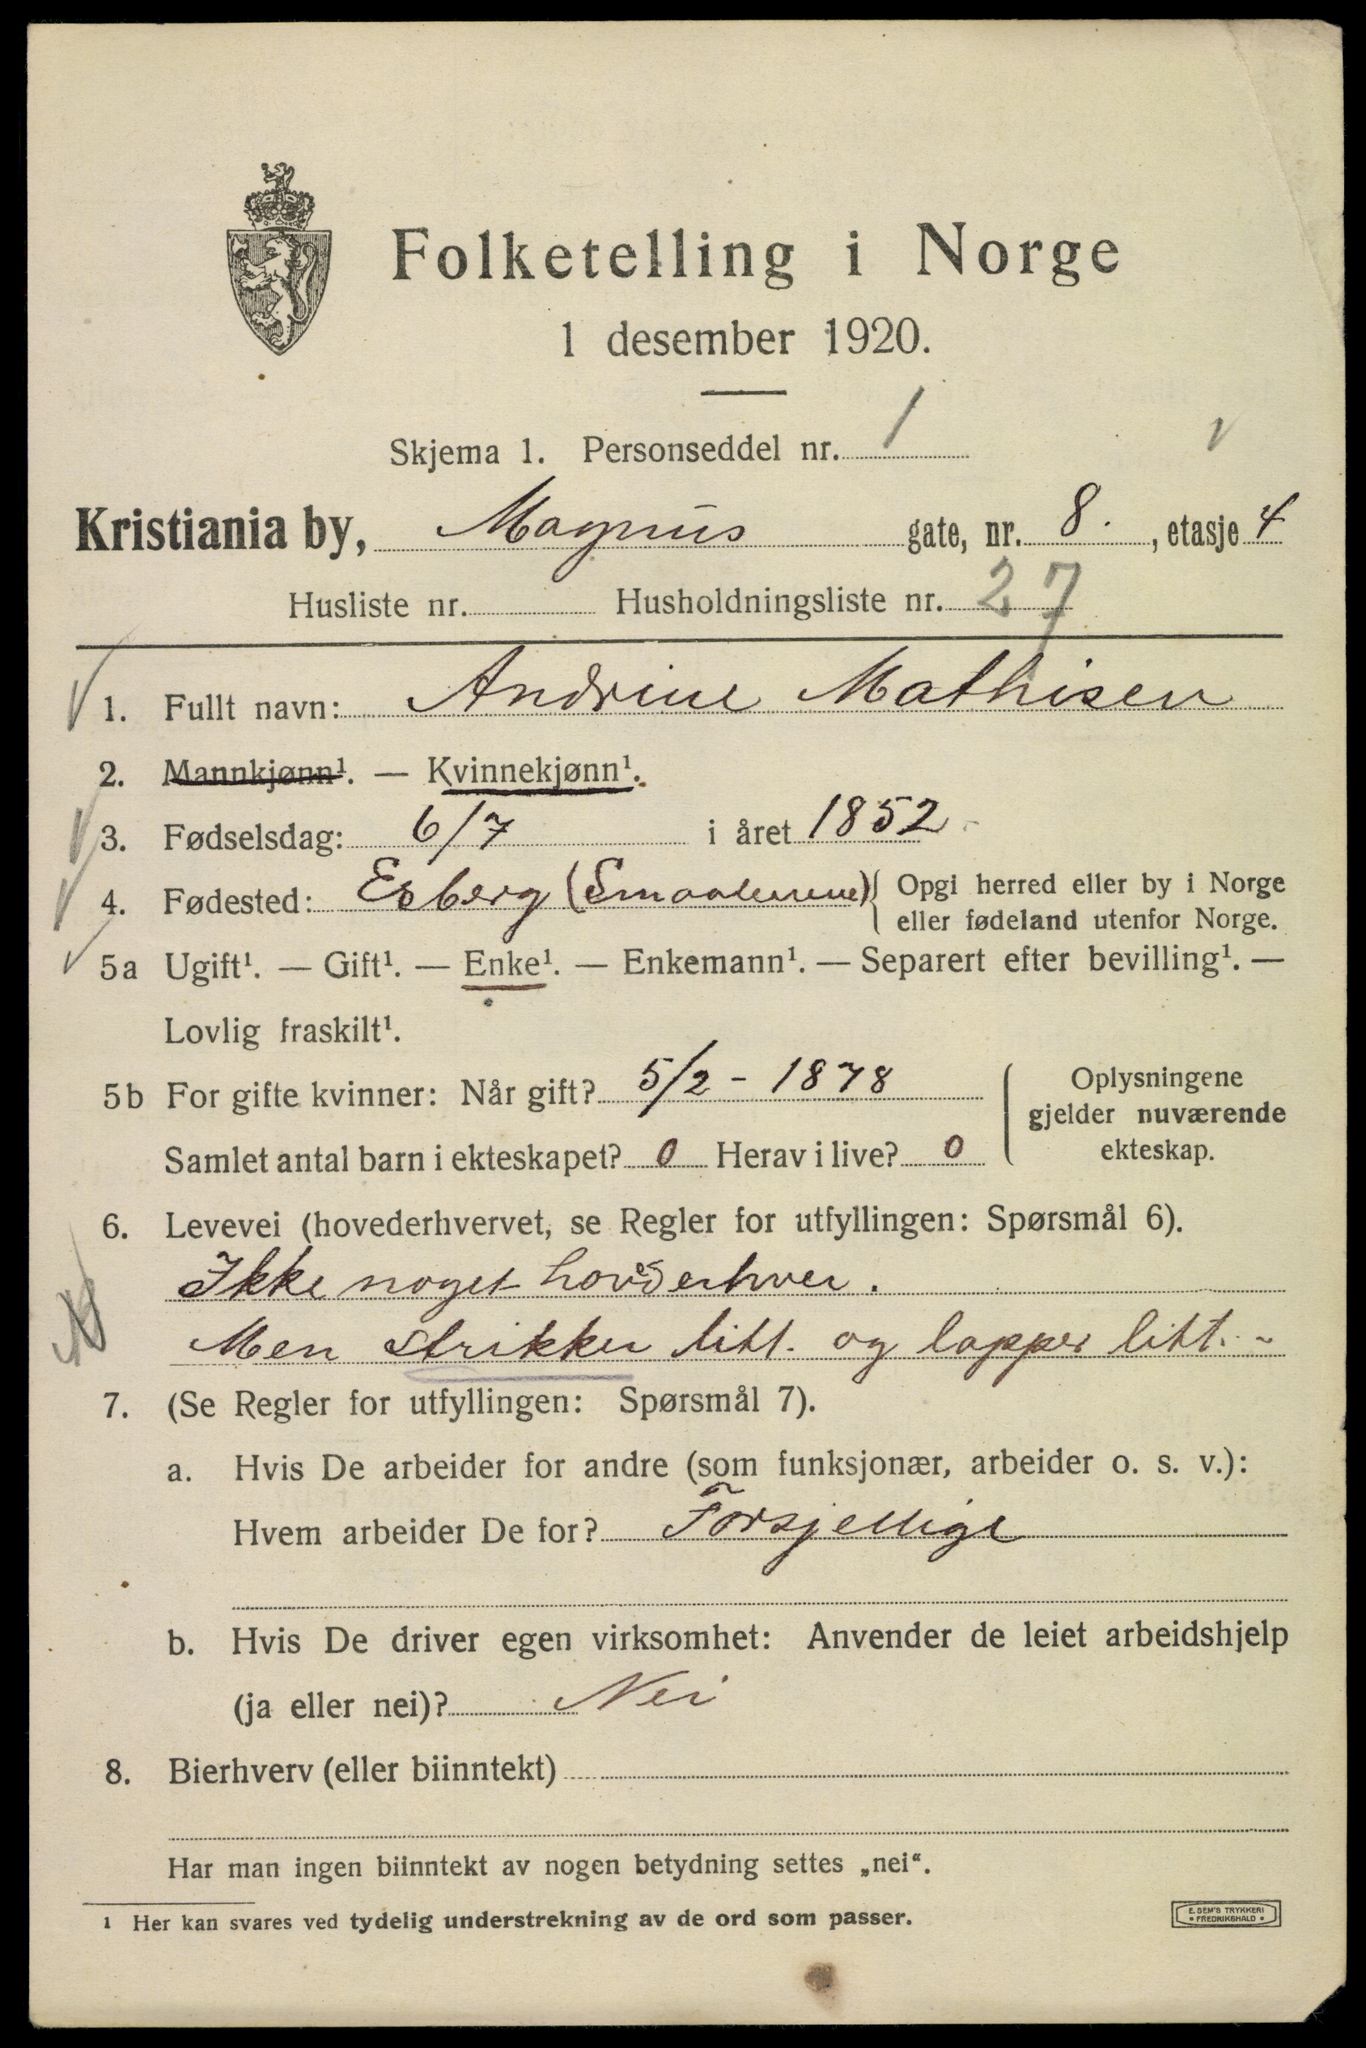 Folketelling i Norge
1 desember 1920.
Skjema 1. Personseddel nr. 1
Kristiania by, Magnus gate, nr. 8. , etasje 4
Husliste nr. Husholdningsliste nr. 27
1. Fullt navn: Andrine Mathisen
2. Mannkjønn¹. — Kvinnekjønn¹.
3. Fødselsdag: 6/7 i året 1852
4. Fødested: Esberg (Smaalenene) Opgi herred eller by i Norge
eller fødeland utenfor Norge.
5a Ugift¹. — Gift¹. — Enke¹. — Enkemann¹. — Separert efter bevilling¹. —
Lovlig fraskilt¹.
5b For gifte kvinner: Når gift? 5/2 - 1878
Samlet antal barn i ekteskapet? 0 Herav i live? 0
Oplysningene
gjelder nuværende
ekteskap.
6. Levevei (hovederhvervet, se Regler for utfyllingen: Spørsmål 6).
Ikke noget hovederhver.
Men strikker litt. og lapper litt. -
7. (Se Regler for utfyllingen: Spørsmål 7).
a. Hvis De arbeider for andre (som funksjonær, arbeider o. s. v.):
Hvem arbeider De for? Forsjellige
b. Hvis De driver egen virksomhet: Anvender de leiet arbeidshjelp
(ja eller nei)? Nei
8. Bierhverv (eller biinntekt)
Har man ingen biinntekt av nogen betydning settes „nei“.
¹ Her kan svares ved tydelig understrekning av de ord som passer.
E. SEM'S TRYKKERI
• FREDRIKSHALD •